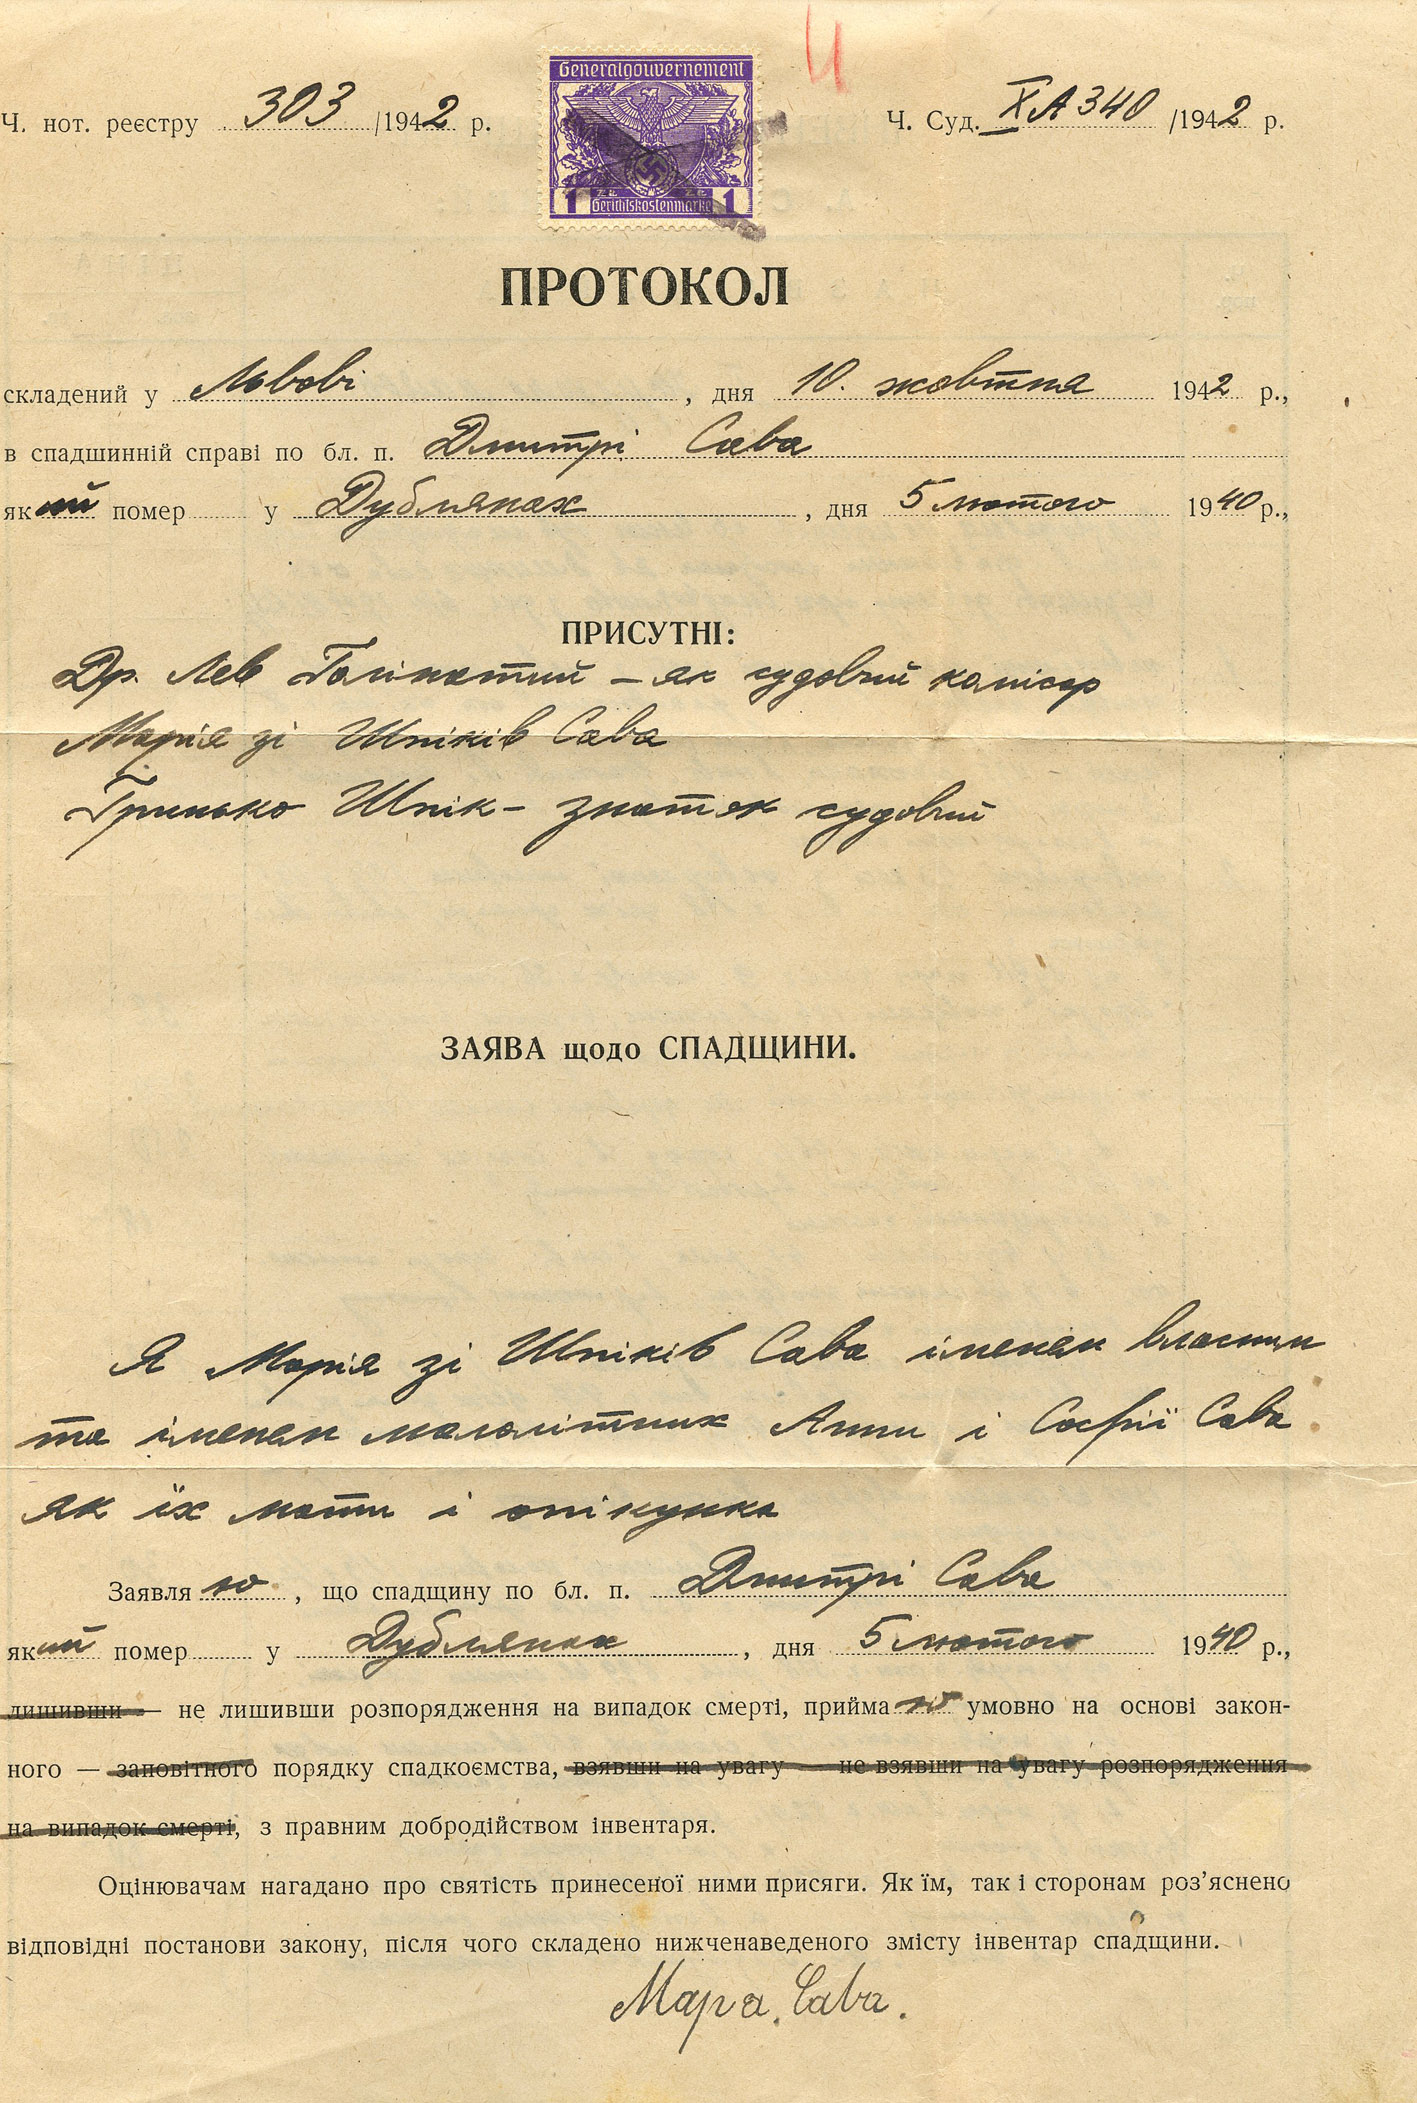 Generalgouvernement
1 Zł. Zł. 1
Gerichtskostenmarke
Ч. нот. реєстру 303 /1942 р.
Ч. Суд. X A 340 /1942 р.
ПРОТОКОЛ
складений у Львові, дня 10. жовтня 1942 р.,
в спадшинній справі по бл. п. Дмитрі Сава
який помер у Дублянах, дня 5 лютого 1940 р.,
ПРИСУТНІ:
Др. Лев – як судовий комісар
Марія зі Шпіків Сава
Гринько Шпік – знаток судовий
ЗАЯВА щодо СПАДЩИНИ.
Я Марія зі Шпіків Сава іменем власним
та іменем малолітних Анни і Софії Сава
як їх мати і опікунка
Заявляю, що спадщину по бл. п. Дмитрі Сава
який помер у Дублянах, дня 5 лютого 1940 р.,
лишивши — не лишивши розпорядження на випадок смерті, приймаю умовно на основі закон-
ного — заповітного порядку спадкоємства, взявши на увагу — не взявши на увагу розпорядження
на випадок смерті, з правним добродійством інвентаря.
Оцінювачам нагадано про святість принесеної ними присяги. Як їм, так і сторонам роз’яснено
відповідні постанови закону, після чого складено нижченаведеного змісту інвентар спадщини.
Мара. Сава.